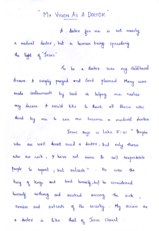 "My Vision As A Doctor"
A doctor for me is not merely
a medical doctor, but a human being spreading
the light of "Jesus".
To be a doctor was my childhood
dream. I simply prayed and God planned. Many were
made instruments by God in helping me realise
my dream. I would like to thank all those who
that by me to see me become a medical doctor.
Jesus says in Luke 5:31 "People
who are well donot need a doctor, but only those
who are sick; I have not come to call respectable
people to repent, but outcasts". He was the
king of kings and Lord himself, but he considered
himself nothing and worked among the sick,
sinners and outcasts of the society. My dream as
a doctor is like that of Jesus Christ